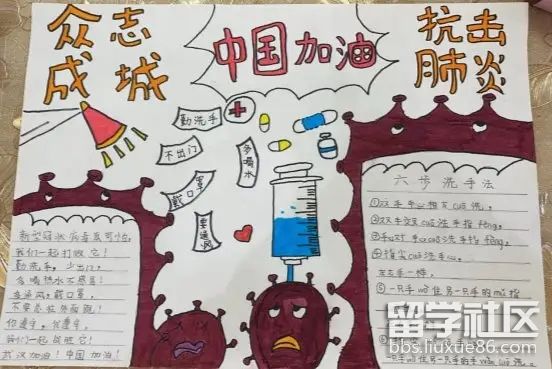 众志
成城
中国加油
抗击
肺炎
勤洗手
不出门
戴口罩
要通风
多喝水
新型冠状病毒真可怕,
我们一起打败它!
勤洗手,少出门,
多喝热水不感冒!
多通风,戴口罩,
不要总往外面跑!
你遵守,我遵守,
我们一起战胜它!
武汉加油!中国加油!
六步洗手法
①双手手心相互cuō洗。
②双手交叉cuō洗手指fèng。
④指尖cuō洗手心,
左右手一样。
⑤一只手wò住另一只手的mǔ指
留学社区
bbs.liuxue86.com